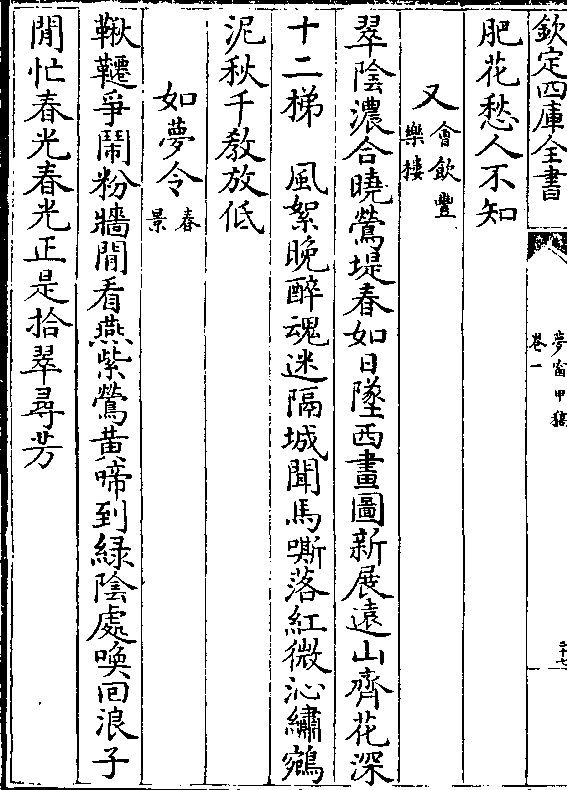 欽定四庫全書
夢窗甲稿
卷一
肥花愁人不知
又 會飲豐樂樓
翠陰濃合曉鶯堤春如日墜西畫圖新展遠山齊花深
十二梯　風絮晚醉魂迷隔城聞馬嘶落紅微沁繡鵷
泥秋千教放低
如夢令 春景
鞦韆爭鬧粉牆閒看燕紫鶯黃啼到緑陰處喚回浪子
閒忙春光春光正是拾翠尋芳